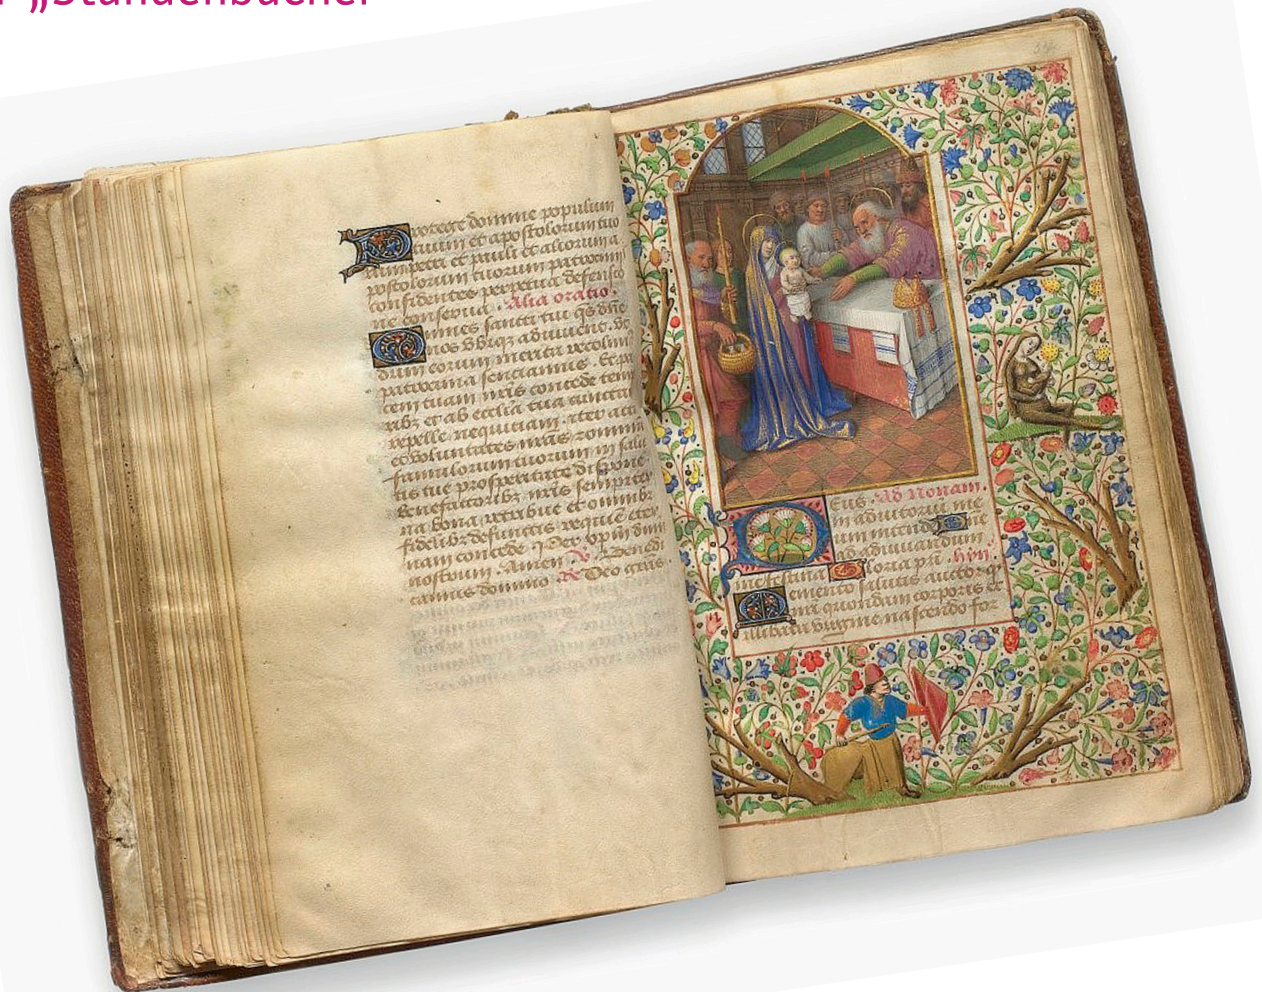 „Stundenbücher“
Protege domine populum
tuum et apostolorum tuo
rum petri et pauli et aliorum a
postolorum tuorum patrocinio
confidentes perpetua defensio
ne conserva. Alia oratio.
Omnes sancti tui qs dne
nos ubiqz adiuvent. vt
dum eorum merita recolim
patrocinia senciamus. Et pa
cem tuam nris concede tem
ribz et ab ecclia tua cunctam
repelle nequitiam. iter actu
et voluntates nras et omniu
famulorum tuorum in salu
tis tue prosperitate dispone
benefactoribz nris sempiter
na bona retribue et omnibz
fidelibz defunctis requiē eter
nam concede Per dnm
nostrum. Amen. Benedi
camus domino. Deo gras.
Deus. Ad Nonam.
in adiutorium me
um intende Dne
ad adiuvandum
me festina Gloria p. hym.
Memento salutis auctor q
nri quondam corporis ex
illibata virgine nascendo for